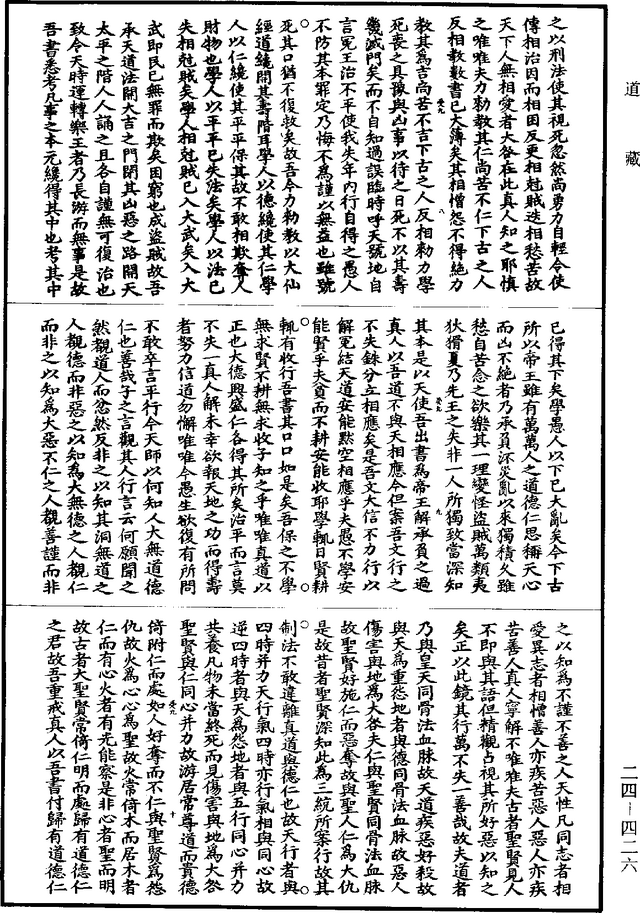 道藏
之以刑法使其視死忽然尚勇力自輕令使
傳相治因而相困反更相尅賊迭相愁苦故
天下人無相愛者大咎在此真人知之耶慎
之唯唯夫力勑教其仁尚苦不仁下古之人
反相教數書已大薄矣其相憎怨不得絕力
教其為吉尚苦不吉下古之人反相勑力學
死喪之具豫與凶事以待之日死不以其壽
幾滅門矣而不自知過誤臨時呼天號地自
言冤王治不平使我失年內行自得之愚人
不防其本罪定乃悔不為謹以無益也雖號
死其口猶不復救矣故吾今力勑教以大仙
經道繞開其壽階耳學人以德繞使其仁學
人以仁繞使其平平保其故不敢相欺奪人
財物也學人以平平已失法矣學人以法已
失相尅賊矣學人相尅賊已入大武矣入大
武即民已無罪而欺矣因窮也成盜賊故吾
承天道法開大吉之門閉其凶惡之路開天
太平之階人人誦之且各自謹無可復治也
致令天時運轉樂王者乃長游而無事是故
吾書悉考凡事之本元繞得其中也考其中
已得其下矣學愚人以下已大亂矣今下古
所以帝王雖有萬萬人之道德仁思稱天心
而凶不絕者乃承負災亂以來獨積久雖
愁自苦念之欲樂其一理變怪盜賊萬類夷
狄猾夏乃先王之失非一人所獨致當深知
其本是以天使吾出書為帝王解承負之過
真人以吾道不與天相應今但案吾文行之
不失銖分立相應矣是吾文大信不力行以
解冤結天道安能默空相應乎夫愚不學安
能賢乎夫貧而不耕安能收耶學輒日賢耕
輒有收行吾書其口口如是矣吾保之不學
無求賢不耕無求收子知之乎唯唯真道以
正也大德興盛仁各得其所矣治平而言莫
不失一真人解未幸欲報天地之功而得壽
者努力信道勿懈唯唯今愚生欲復有所問
不敢卒言平行今天師以何知人大無道德
仁也善哉子之言觀其人行言云何願聞之
然觀道人而忽然反非之以知其洞無道之
人觀德而非惡之以知為大無德之人觀仁
而非之以知為大惡不仁之人觀善謹而非
之以知為不謹不善之人天性凡同志者相
愛異志者相憎善人亦疾苦惡人惡人亦疾
苦善人真人寧解不唯唯夫古者聖賢見人
不即與其語但精觀占視其所好惡以知之
矣正以此鏡其行萬不失一善哉故夫道者
乃與皇天同骨法血脉故天道疾惡好殺故
與天為重怨地者與德同骨法血脉故惡人
傷害與地為大咎夫仁與聖賢同骨法血脉
故聖賢好施仁而惡奪故與聖人仁為大仇
是故昔者聖賢深知此為三統所案行故其
制法不敢違離真道與德仁也故天行者與
四時并力天行氣四時亦行氣相與同心故
逆四時者與天為怨地者與五行同心并力
共養凡物未當終死而見傷害與地為大咎
聖賢與仁同心并力故游居常尊道而貴德
倚附仁而處如人好奪而不仁與聖賢為怨
仇故火為心心為聖故火常倚木而居木者
仁而有心火者有光能察是非心者聖而明
故古者大聖賢常倚仁明而處歸有道德仁
之君故吾重戒真人以吾書付歸有道德仁
二四-四二六